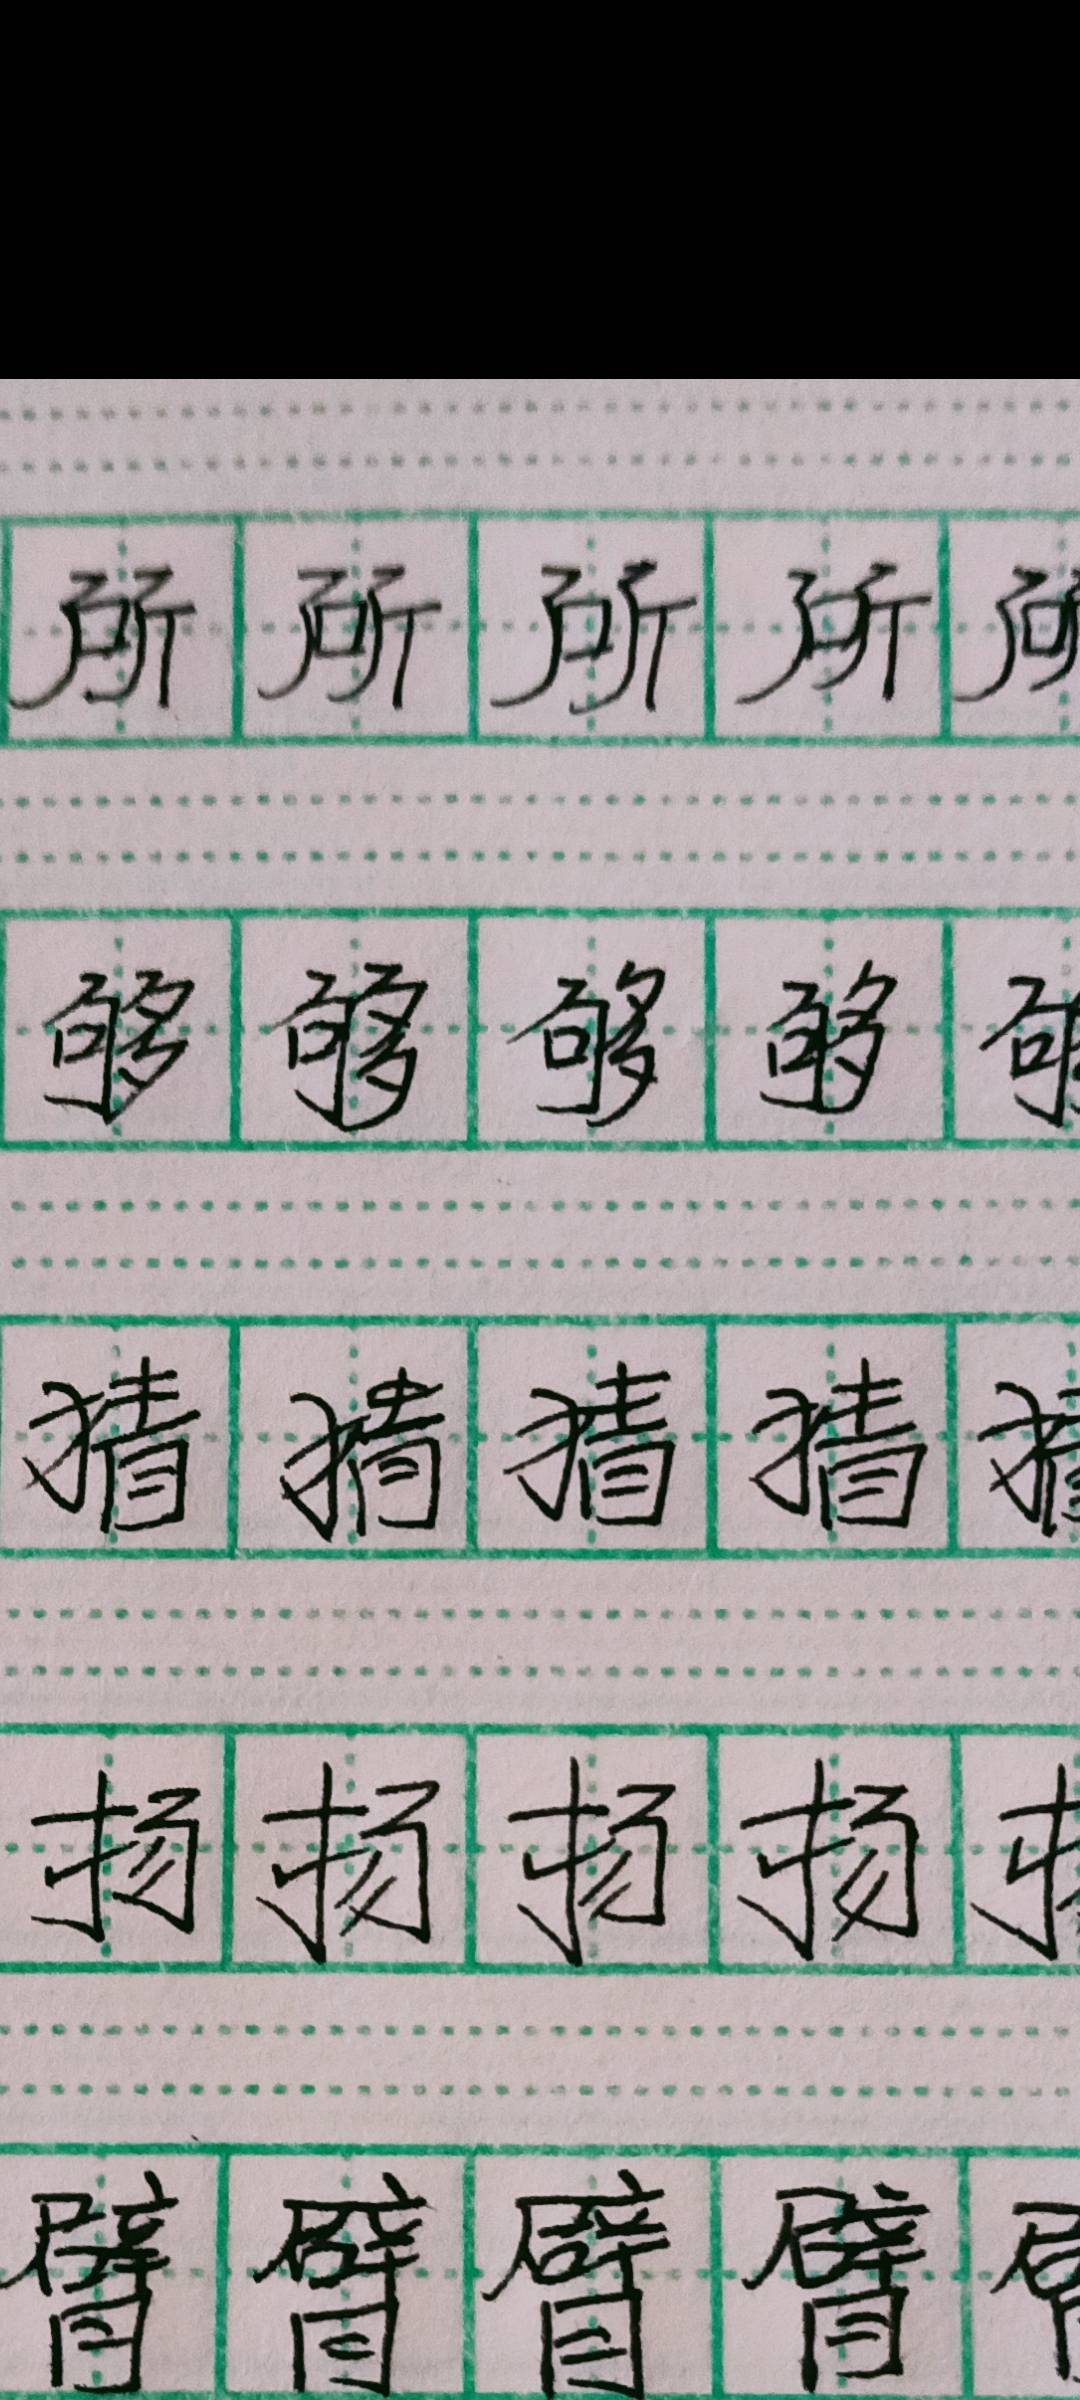 所 所 所 所 所
够 够 够 够
猜 猜 猜 猜 猜
扬 扬 扬 扬
臂 臂 臂 臂